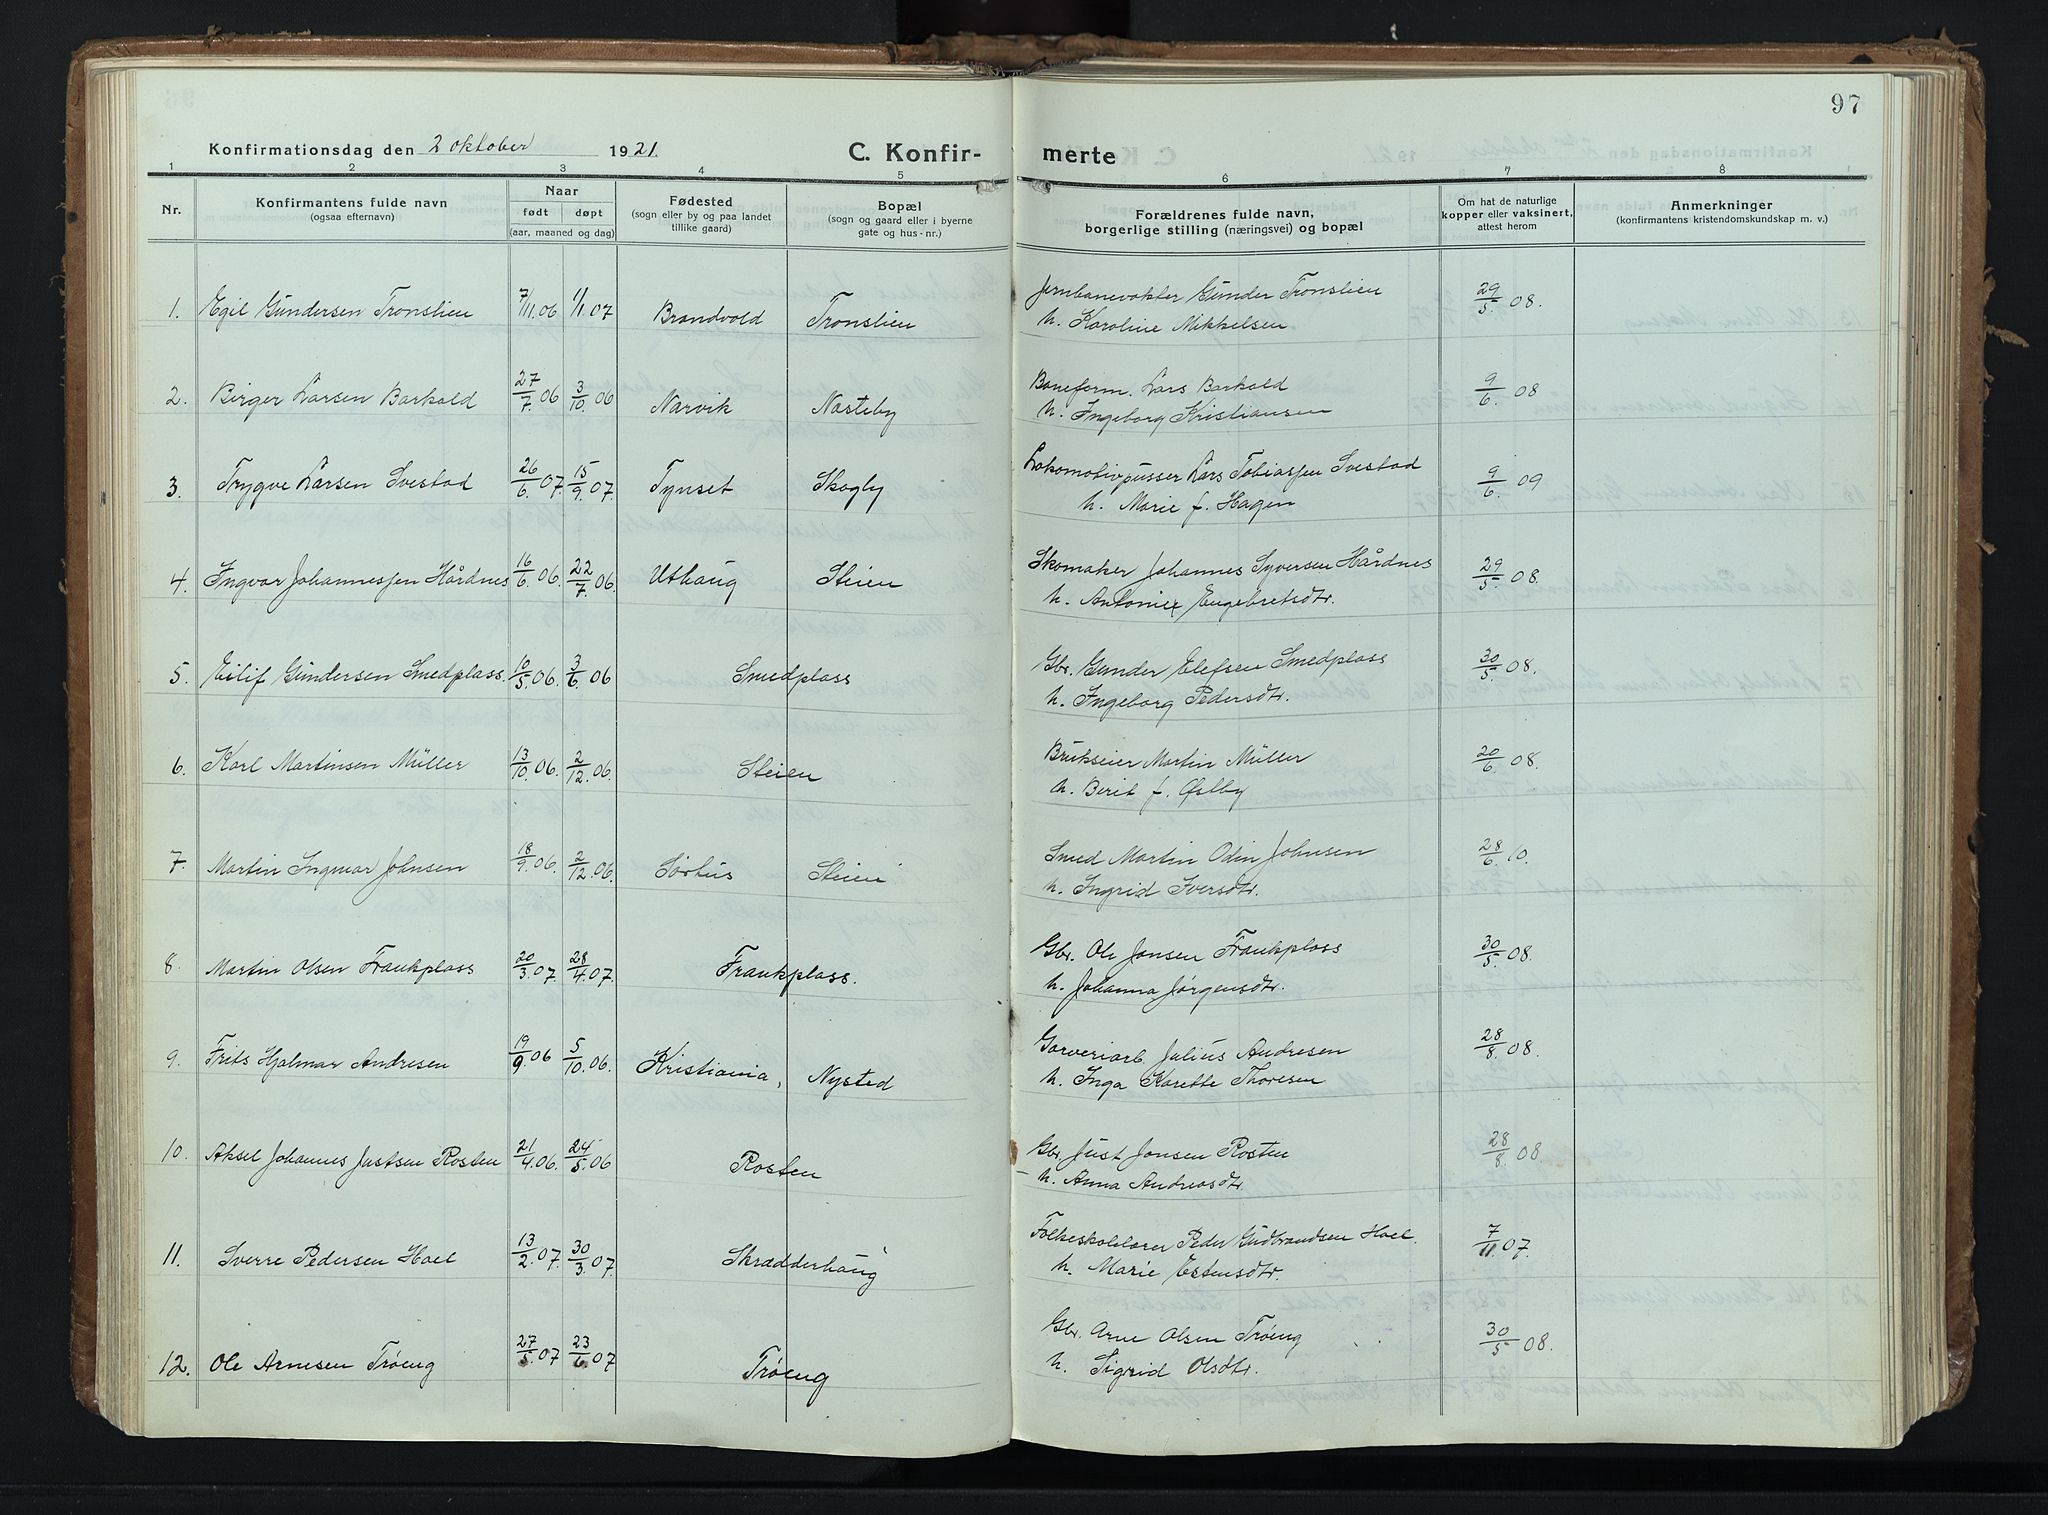 97
Konfirmationsdag den 2 oktober 1921.
C. Konfir- merte
1 2 3 4 5 6 7 8
Nr.
Konfirmantens fulde navn
(ogsaa efternavn)
Naar
født døpt
(aar, maaned og dag)
Fødested
(sogn eller by og paa landet
tillike gaard)
Bopæl
(sogn og gaard eller i byerne
gate og hus-nr.)
Forældrenes fulde navn,
borgerlige stilling (næringsvei) og bopæl
Om hat de naturlige
kopper eller vaksinert,
attest herom
Anmerkninger
(konfirmantens kristendomskundskap m. v.)
1. Egil Gundersen Tronslien 7/11.06 1/1.07 Brandvold Tronslien Jernbanevokter Gunder Tronslien 29/5 08.
h. Karoline Mikkelsen
2. Birger Larsen Barkald 27/7.06 3/10.06 Narvik Nasteby Baneform. Lars Barkald 9/6. 08
h. Ingeborg Kristiansen
3. Trygve Larsen Svestad 26/6.07. 15/9.07. Tynset Skogby Lokomotivpusser Lars Tobiassen Svestad 9/6. 09
h. Marie f. Hagen
4. Ingvar Johannessen Hårdnes 16/6.06. 22/7.06. Uthaug Steien Skomaker Johannes Syversen Hårdnes 29/5.08.
h. Antonie Engebretsdtr.
5. Eilif Gundersen Smedplass. 10/5.06. 3/6.06 Smedplass Gbr. Gunder Elefsen Smedplass 30/5 08.
h. Ingeborg Pedersdtr.
6. Karl Martinsen Müller 13/10.06. 2/12.06. Steien Brukseier Martin Müller 20/6.08.
h. Berit f. Østby
7. Martin Ingmar Johnsen 18/9.06. 2/12.06. Sørhus Steien Smed Martin Odin Johnsen 28/6.10.
h. Ingrid Iversdtr.
8. Martin Olsen Frankplass 20/3.07. 28/4.07. Frankplass. Gbr. Ole Jonsen Frankplass 30/5.08.
h. Johanna Jørgensdtr.
9. Frits Hjalmar Andresen 19/9.06 5/10.06. Kristiania, Nysted Garveriarb. Julius Andresen 28/8.08.
h. Inga Karette Thoresen
10. Aksel Johannes Justsen Rosten 21/4.06. 24/5.06 Rosten Gbr. Just Jonsen Rosten 28/8.08.
h. Anna Andreasdtr.
11. Sverre Pedersen Hoel 13/2.07. 30/3.07. Skradderhaug Folkeskolelærer Peder Gudbrandsen Hoel. 7/11 07.
h. Marie Estensdtr.
12. Ole Arnesen Trøeng 27/5.07 23/6.07 Trøeng Gbr. Arne Olsen Trøeng 30/5 08.
h. Sigrid Olsdtr.